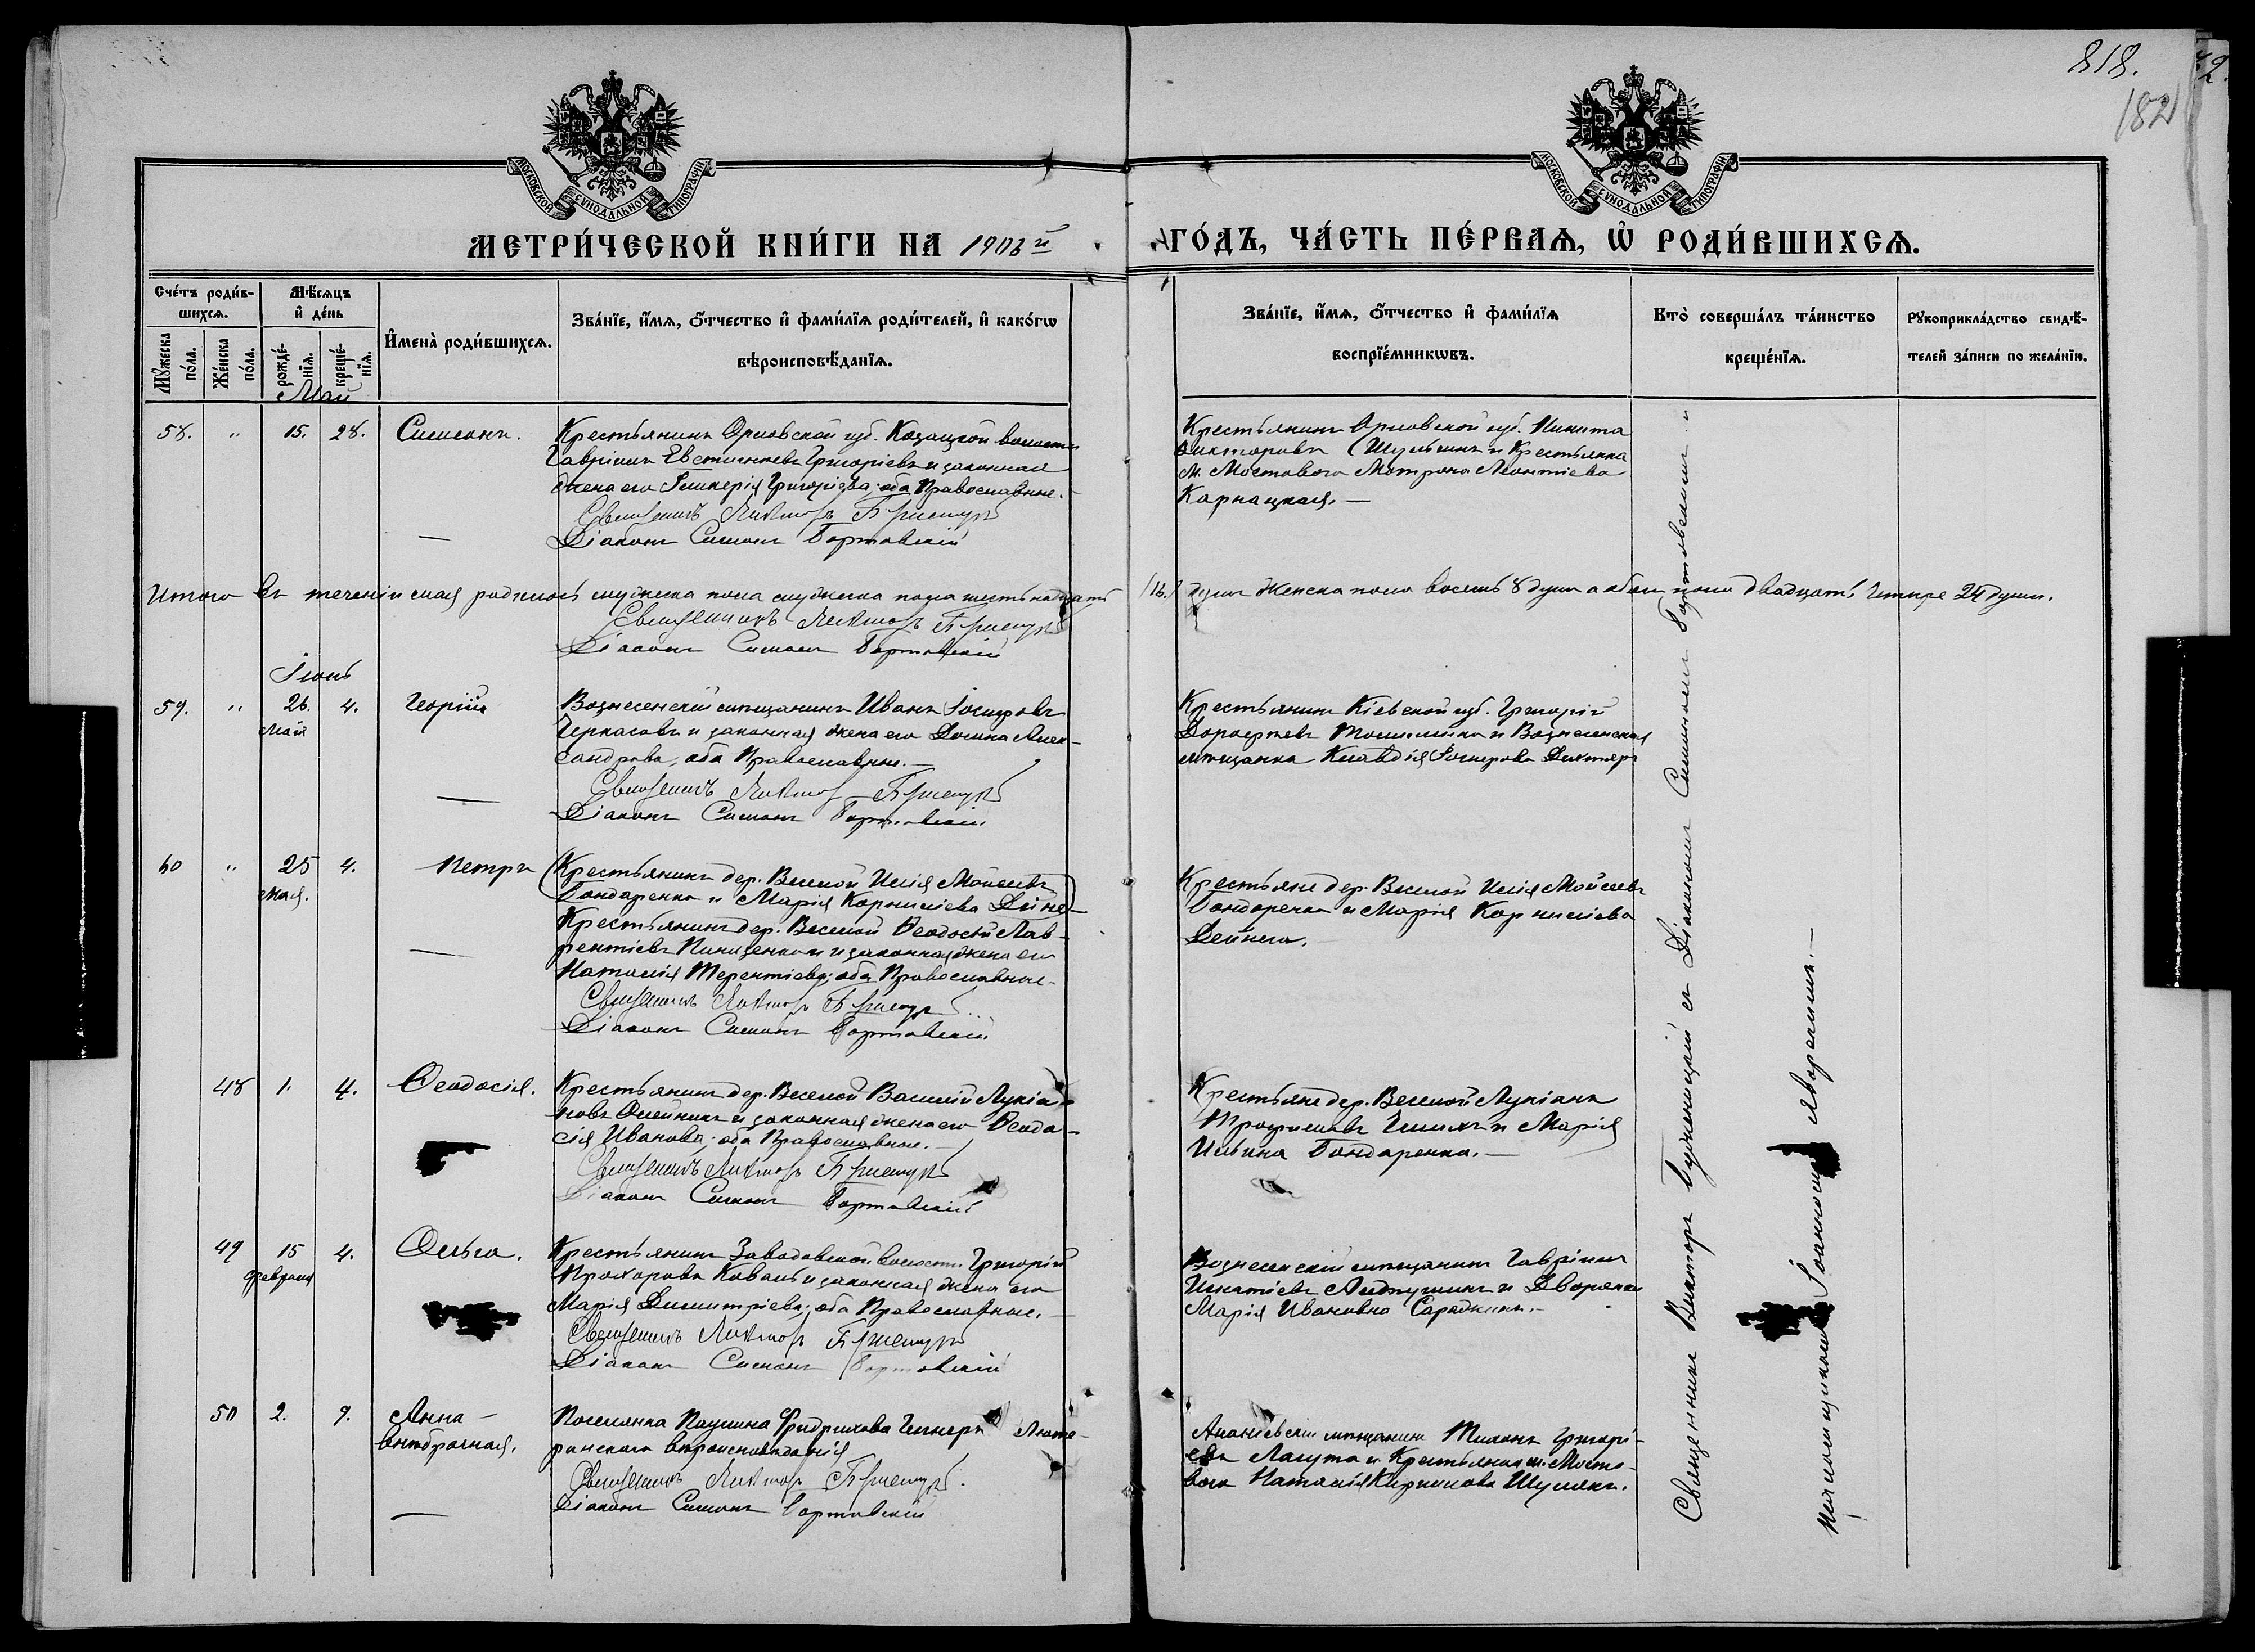 818.
182
МОСКОВСКОЙ СѴНОДАЛЬНОЙ ТИПОГРАФІИ
МОСКОВСКОЙ СѴНОДАЛЬНОЙ ТИПОГРАФІИ
МЕТРИ́ЧЕСКОЙ КНИ́ГИ НА 1903й
ГО́ДЪ, ЧА́СТЬ ПЕ́РВАѦ, Ѡ҆ РОДИ́ВШИХСѦ.
Сче́тъ роди́в-
шихсѧ.
Мꙋ́жеска по́ла.
Же́нска по́ла.
Мѣ́сѧцъ
и҆ де́нь
рожде́-
нїѧ.
креще́-
нїѧ.
И҆мена̀ роди́вшихсѧ.
Зва́нїе, и҆́мѧ, ѻ҆́тчество и҆ фами́лїѧ роди́телей, и҆ како́гѡ
вѣроисповѣ́данїѧ.
Зва́нїе, и҆́мѧ, ѻ҆́тчество и҆ фами́лїѧ
воспрїе́мникѡвъ.
Кто̀ соверша́лъ та́инство
креще́нїѧ.
Рꙋкоприкла́дство свидѣ́-
телей за́писи по жела́нїю.
Май
58. " 15. 28. Симеонъ.
Крестьянинъ Орловской губ. Козацкой волости
Гавріилъ Евстигнѣевъ Григорьевъ и законная
жена его Гликерія Григоріева; оба Православные.
Священникъ Викторъ
Діаконъ Симеонъ Бортовскій
Крестьянинъ Орловской губ. Никита
Викторовъ и Крестьянка
м. Мостового Матрона Леонтіева
Карнацкая. —
Итого въ теченіи мая родилось мужеска пола мужеска пола шестьнадцать
(16.) душъ женска пола восемь 8 душъ а обоего пола двадцать четыре 24 души.
Священникъ Викторъ
Діаконъ Симеонъ Бортовскій
Іюнь
59. " 26. мая 4. Георгій
Вознесенскій мѣщанинъ Иванъ Іосифовъ
Черкасовъ и законная жена его Домна Алек-
сандрова, оба Православные. —
Священникъ Викторъ
Діаконъ Симеонъ Бортовскій
Крестьянинъ Кіевской губ. Григорій
Дорофеевъ и Вознесенская
мѣщанка Клавдія Іосифова Дихтяръ
60 " 25 мая. 4. Петръ
(Крестьянинъ дер. Веселой Илія Мойсеевъ
Бондаренко и Марія Корниліева Дейне)
Крестьянинъ дер. Веселой Ѳеодосій Лав-
рентіевъ и законная жена его
Наталія Терентіева; оба Православные.
Священникъ Викторъ
Діаконъ Симеонъ Бортовскій
Крестьяне дер. Веселой Илія Мойсеевъ
Бондаренко и Марія Корниліева
Дейнега.
48 1. 4. Ѳеодосія.
Крестьянинъ дер. Веселой Василій Лукіа-
новъ Олейникъ и законная жена его Ѳеодо-
сія Иванова; оба Православные.
Священникъ Викторъ
Діаконъ Симеонъ Бортовскій
Крестьяне дер. Веселой Лукіанъ
Трофимовъ и Марія
Ильина Бондаренко. —
49 15 февраля 4. Ольга.
Крестьянинъ Заводовской волости Григорій
Прохоровъ Коваль и законная жена его
Марія Димитріева; оба Православные. —
Священникъ Викторъ
Діаконъ Симеонъ Бортовскій
Вознесенскій мѣщанинъ Гавріилъ
Игнатіевъ и Дворянка
Марія Ивановна
50 2. 9. Анна — внѣбрачная.
Поселянка Паулина Фридрихова Люте-
ранскаго вѣроисповѣданія
Священникъ Викторъ
Діаконъ Симеонъ Бортовскій
Ананьевскій мѣщанинъ Тихонъ Григорі-
евъ Лагута и Крестьянка м. Мосто-
вого Наталія Кирилова Шулякъ.
Священникъ Викторъ съ Діакономъ Симеономъ Бортовскимъ и
псаломщикомъ Іоанномъ Яворскимъ. —